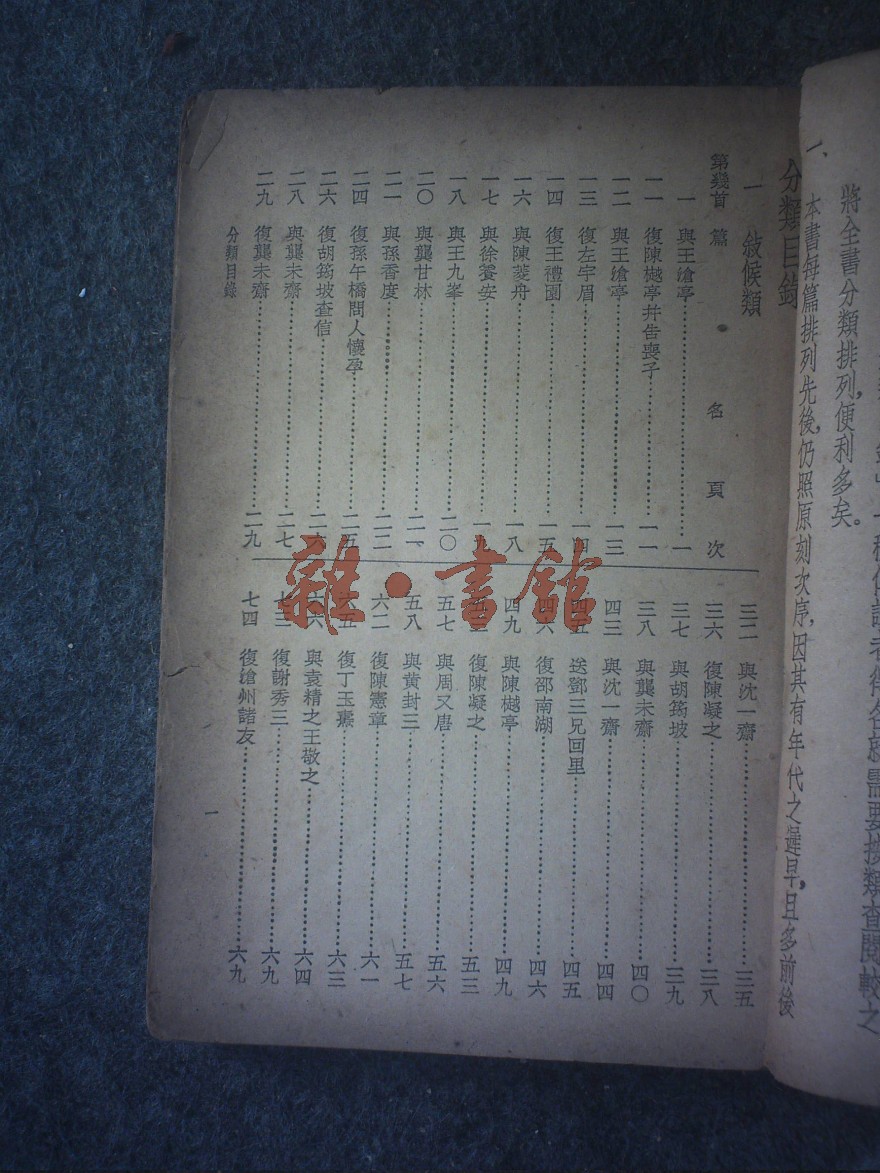 需要按類查閱較之
將全書分類排列，便利多矣。
一、本書每篇排列先後，仍照原刻次序，因其有年代之遲早，且多前後
分類目錄
一 敍候類
第幾首 篇名 頁次
一 與王滄亭……一
一一 復陳樾亭幷告喪子……一一
一二 與王滄亭……一三
一三 復左宇眉……一四
一四 復王禮園……一五
一六 與陳菱舟……一八
一七 與徐薆安……一九
一八 與王九峯……二〇
二〇 與龔甘林……二一
二一 與孫香度……二二
二四 復孫午橋問人懷孕……二五
二六 復胡筠坡查信……二六
二八 與龔未齋……二七
二九 復龔未齋……二九
三二 與沈一齋……三五
三六 復陳凝之……三八
三七 與胡筠坡……三九
三八 與龔未齋……四〇
四三 與沈一齋……四四
四五 送鄧三兄回里……四五
四六 復邵南湖……四六
四九 與陳樾亭……四九
復陳凝之……五三
五七 與周又唐……五六
五八 與黄封三……五七
六二 復陳憲章……六一
六五 復丁玉……六三
六六 與袁精之王敬之……六四
七三 復謝秀三……六九
七四 復滄州諸友……六九
分類目錄
一
雜·書館